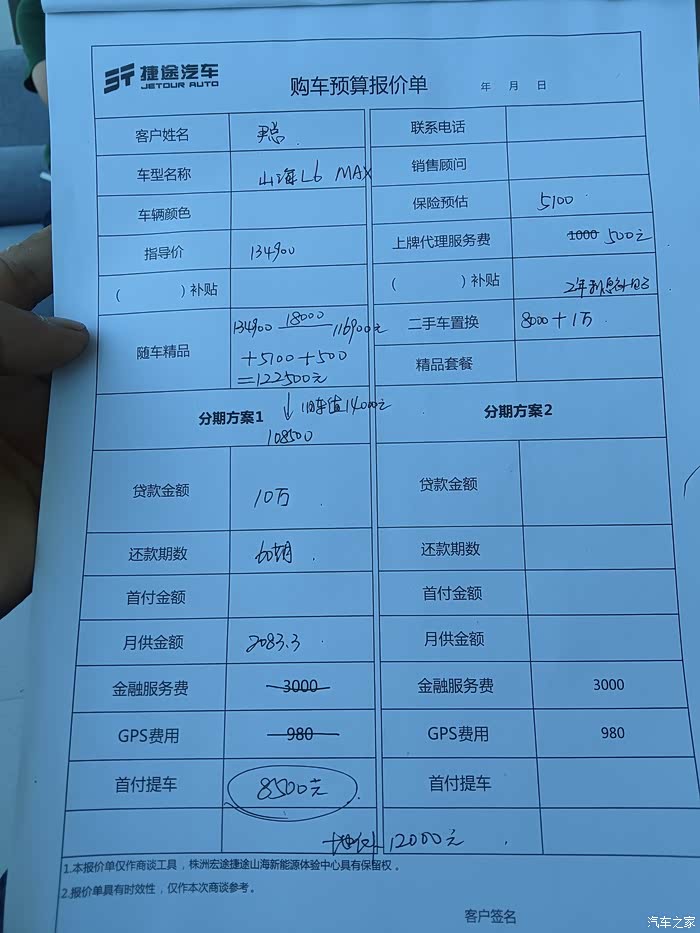 捷途汽车
JETOUR AUTO
购车预算报价单
年 月 日
客户姓名
联系电话
车型名称 山海L6 MAX
销售顾问
车辆颜色
保险预估 5100
指导价 134900
上牌代理服务费 1000 500元
( )补贴
( )补贴 2年利息补贴
随车精品 134900 18000 116900元
+5100+500
=122500元
二手车置换 8000+1万
精品套餐
旧车值14000元
108500
分期方案1
分期方案2
贷款金额 10万
贷款金额
还款期数 60期
还款期数
首付金额
首付金额
月供金额 2083.3
月供金额
金融服务费 3000
金融服务费 3000
GPS费用 980
GPS费用 980
首付提车 8500元
首付提车
12000元
1.本报价单仅作商谈工具，株洲宏途捷途山海新能源体验中心具有保留权。
2.报价单具有时效性，仅作本次商谈参考。
客户签名
汽车之家